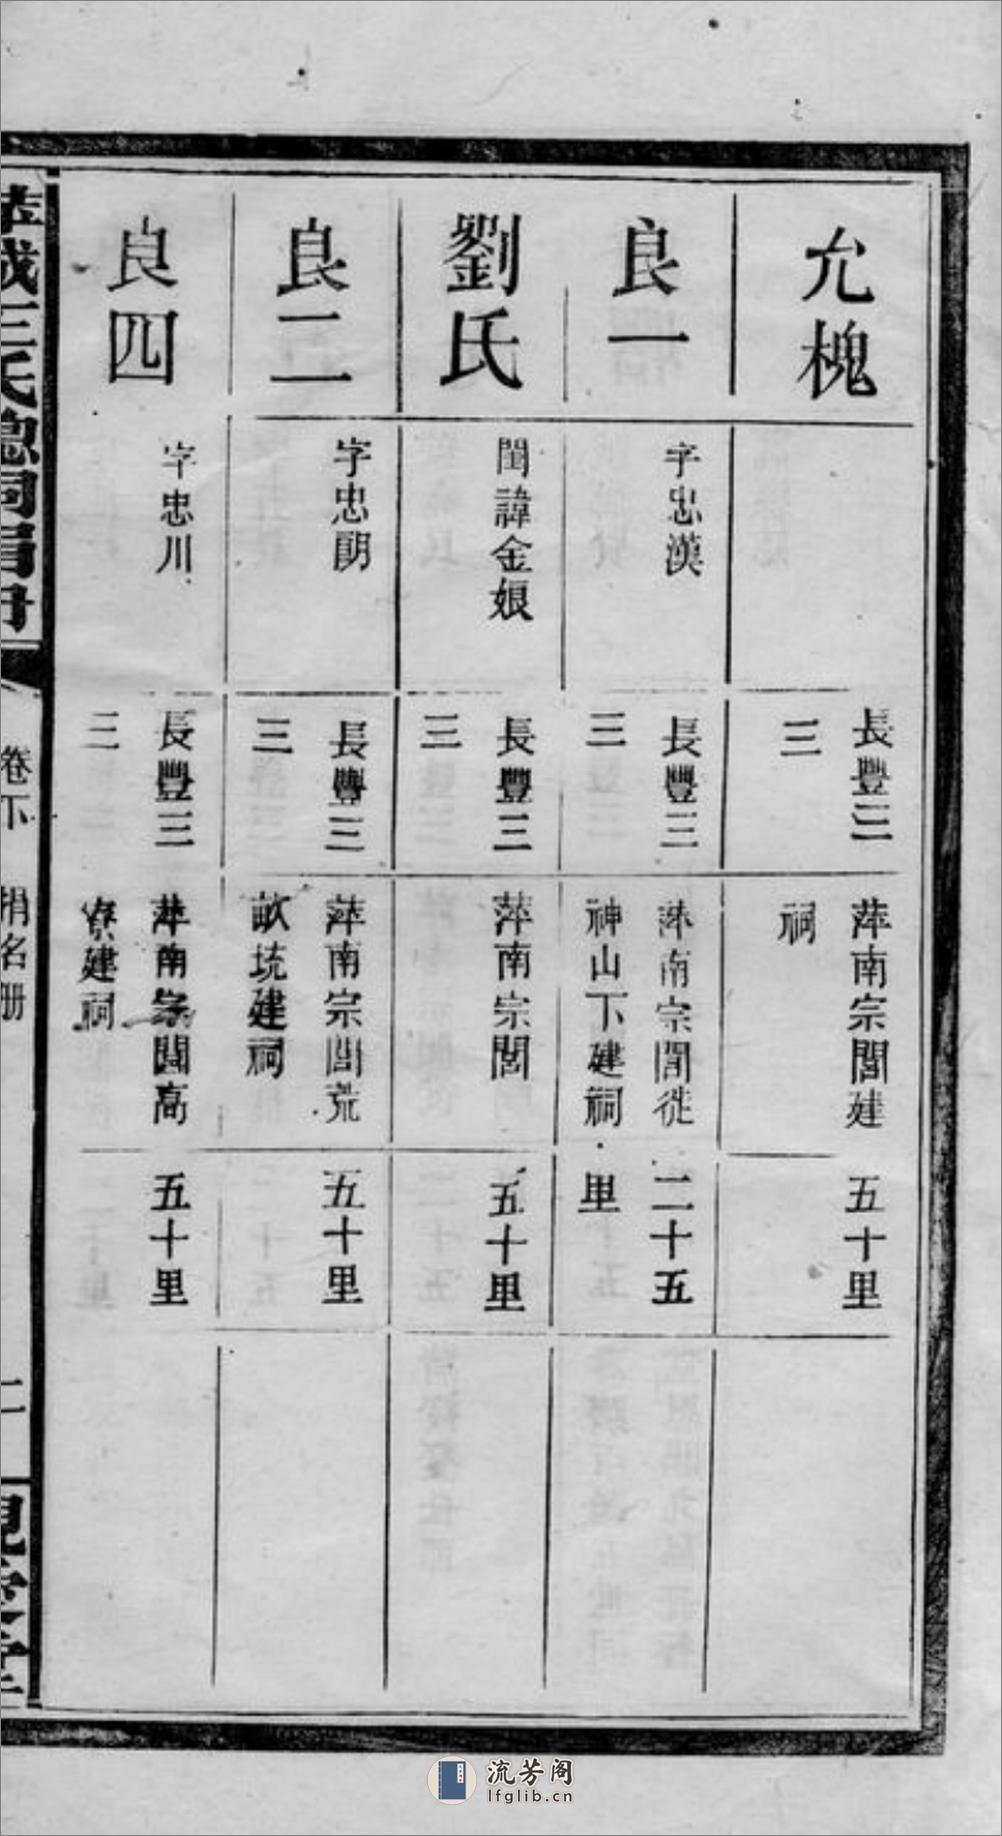 允槐
長豐三
三
萍南宗閭建
祠
五十里
良一
字忠漢
長豐三
三
萍南宗閭徙
神山下建祠
二十五
里
劉氏
閨諱金娘
長豐三
三
萍南宗閭
五十里
良二
字忠朗
長豐三
三
萍南宗閭荒
畝坑建祠
五十里
良四
字忠川
長豐三
三
萍南宗閭高
寮建祠
五十里
王氏總祠捐册
卷下 捐名册
二
流芳阁
lfglib.cn